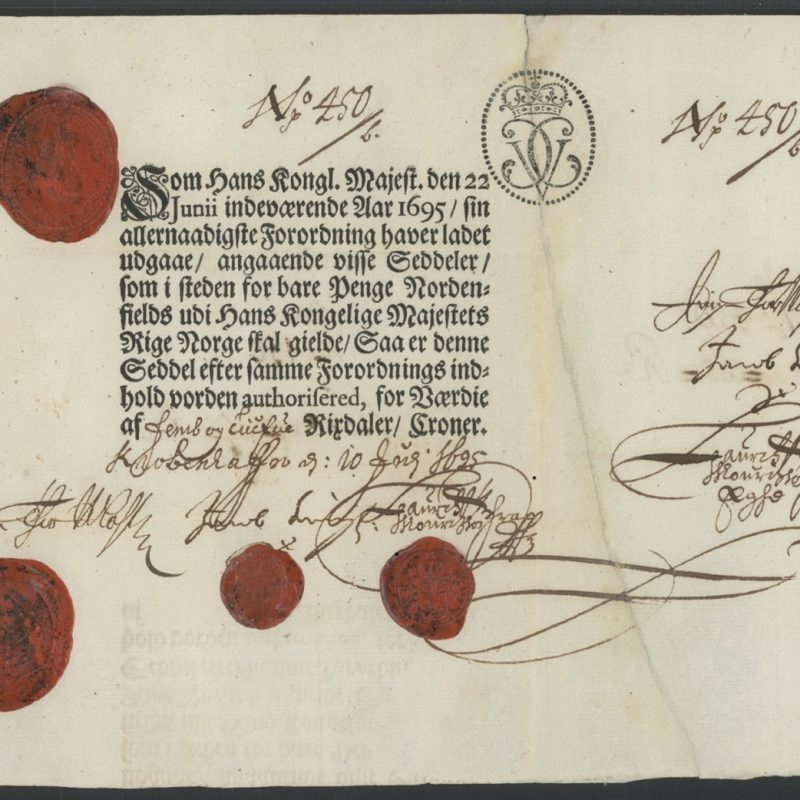 No 450
b.
No 450
b.
Som Hans Kongl. Majest. den 22
Junii indeværende Aar 1695/ sin
allernaadigste Forordning haver ladet
udgaae/ angaaende visse Seddeler/
som i steden for bare Penge Norden=
fields udi Hans Kongelige Majestets
Rige Norge skal gielde/ Saa er denne
Seddel efter samme Forordnings ind=
hold vorden authorisered, for Værdie
af femb og Rixdaler/ Croner.
d: 10 1695
Jacob
Lauritz
Mouritz
Jacob
Lauritz
Mouritz